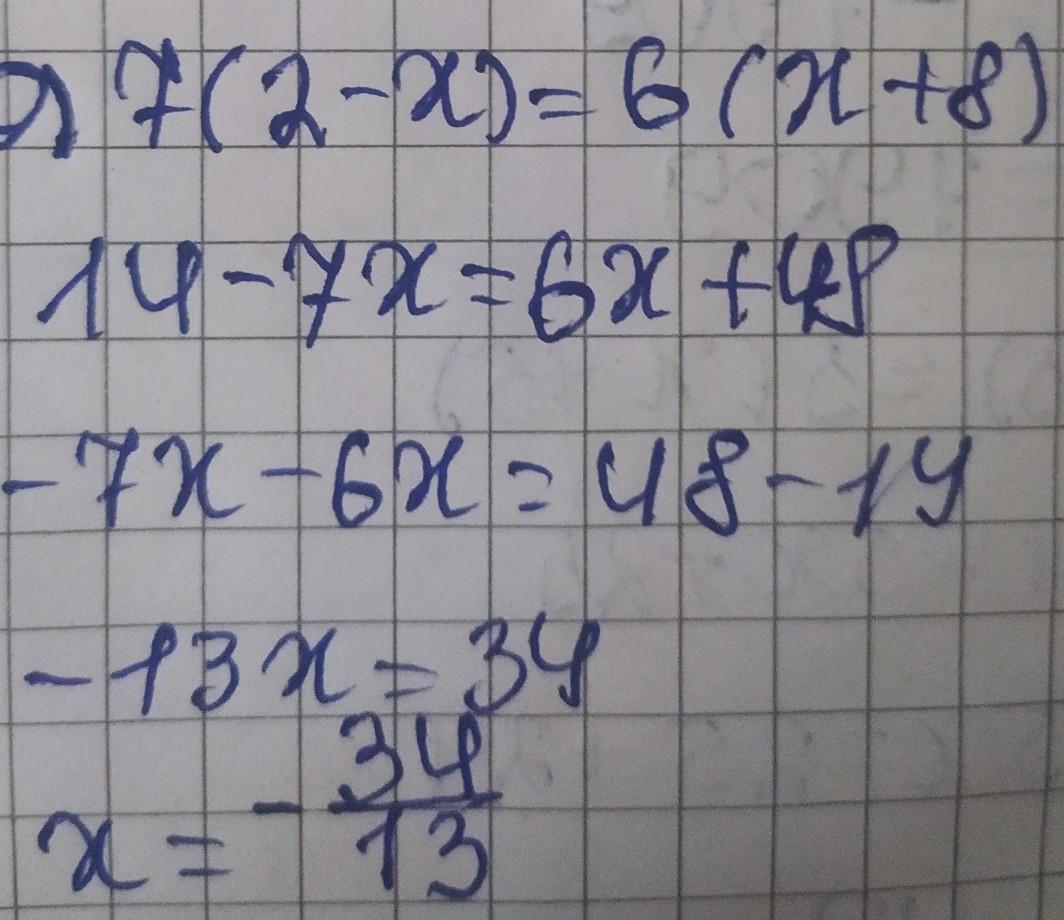 7(2-x)=6(x+8)
14-7x=6x+48
-7x-6x=48-14
-13x=34
x=-34/13